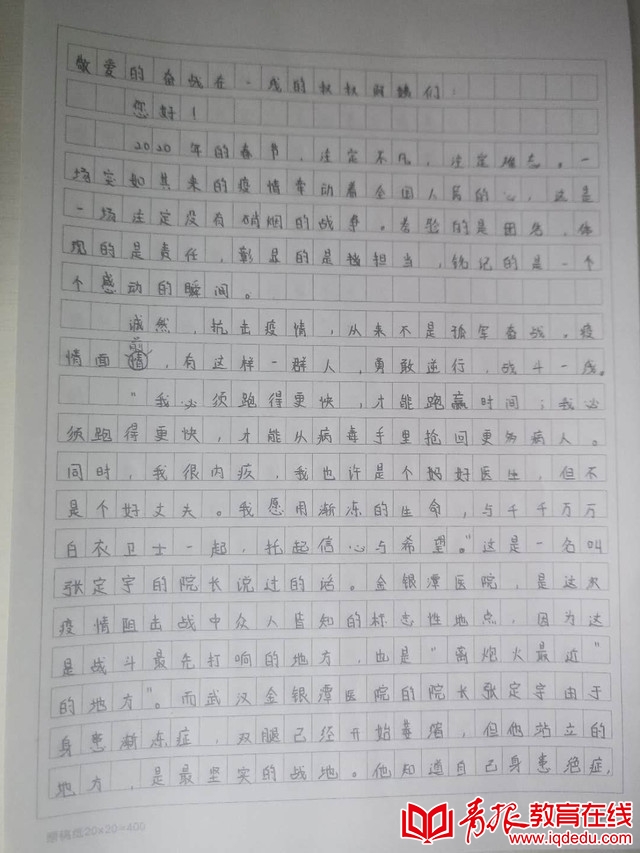 敬爱的奋战在一线的叔叔阿姨们：
您好！
2020年的春节，注定不凡，注定难忘。一
场突如其来的疫情牵动着全国人民的心，这是
一场注定没有硝烟的战争。考验的是团结，体
现的是责任，彰显的是担当，铭记的是一个
个感动的瞬间。
诚然，抗击疫情，从来不是孤军奋战。疫
情面前，有这样一群人，勇敢逆行，战斗一线。
“我必须跑得更快，才能跑赢时间；我必
须跑得更快，才能从病毒手里抢回更多病人。
同时，我很内疚，我也许是个好医生，但不
是个好丈夫。我愿用渐冻的生命，与千千万万
白衣卫士一起，托起信心与希望。”这是一名叫
张定宇的院长说过的话。金银潭医院，是这次
疫情阻击战中众人皆知的标志性地点，因为这
是战斗最先打响的地方，也是“离炮火最近”
的地方”。而武汉金银潭医院的院长张定宇由于
身患渐冻症，双腿已经开始萎缩，但他站立的
地方，是最坚实的战地。他知道自己身患绝症，
原稿纸20×20=400
青报教育在线
www.iqdedu.com